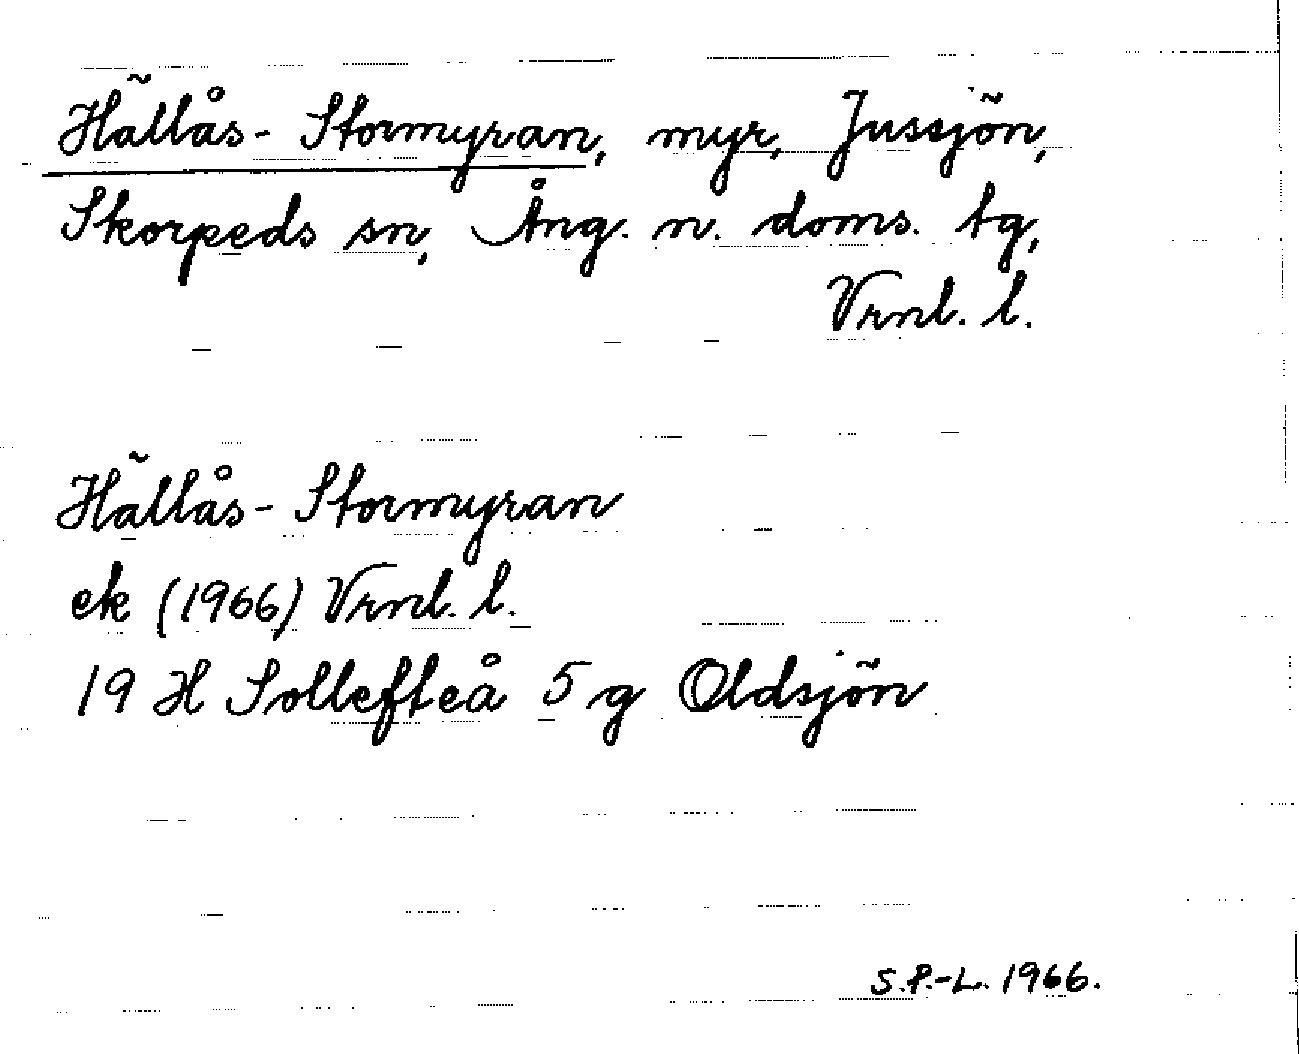 Hällås-Stormyran, myr, Jussjön,
Skorpeds sn, Ång. n. doms. tg,
Vrnl. l.
Hällås-Stormyran
ek (1966) Vrnl. l.
19 H Sollefteå 5 g Oldsjön
S.P.-L. 1966.